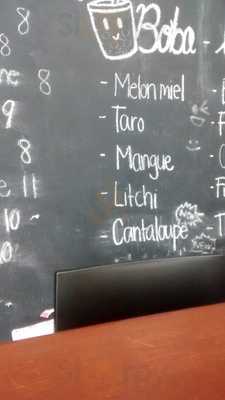 8
8
9
8
11
10
10
Boba
- Melon miel
- Taro
- Mangue
- Litchi
- Cantaloupe